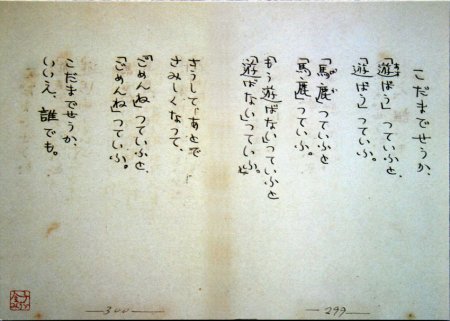 こだまでせうか、
「遊ばう」っていふと、
「遊ばう」っていふ。
「馬鹿」っていふと
「馬鹿」っていふ。
もう遊ばないっていふと
「遊ばない」っていふ。
さうしてあとで
さみしくなって、
「ごめんね」っていふと
「ごめんね」っていふ。
こだまでせうか、
いいえ、誰でも。
—299—
—300—